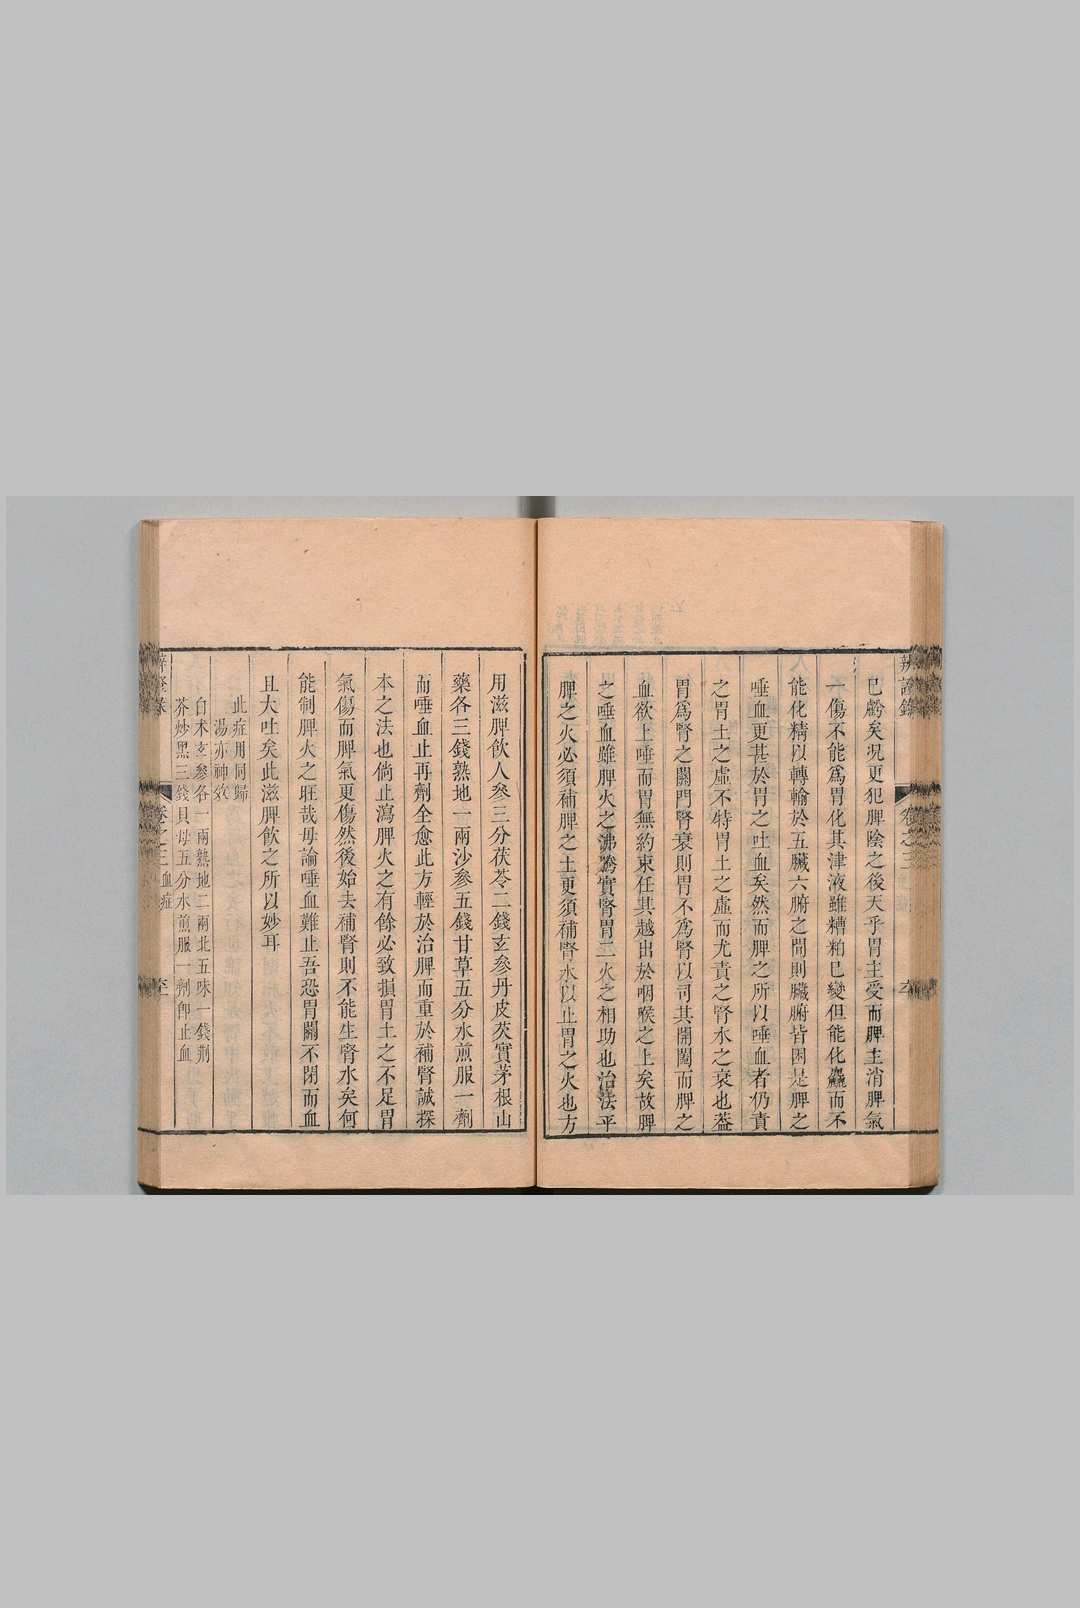 辨證錄 卷之三
已虧矣況更犯脾陰之後天乎胃主受而脾主消脾氣
一傷不能爲胃化其津液雖糟粕已變但能化麤而不
能化精以轉輸於五臟六腑之間則臟腑皆困是脾之
唾血更甚於胃之吐血矣然而脾之所以唾血者仍責
之胃土之虛不特胃土之虛而尤責之腎水之衰也蓋
胃爲腎之關門腎衰則胃不爲腎以司其開闔而脾之
血欲上唾而胃無約束任其越出於咽喉之上矣故脾
之唾血雖脾火之沸騰實腎胃二火之相助也治法平
脾之火必須補脾之土更須補腎水以止胃之火也方
用滋脾飲人參三分茯苓二錢玄參丹皮芡實茅根山
藥各三錢熟地一兩沙參五錢甘草五分水煎服一劑
而唾血止再劑全愈此方輕於治脾而重於補腎誠探
本之法也倘止瀉脾火之有餘必致損胃土之不足胃
氣傷而脾氣更傷然後始去補腎則不能生腎水矣何
能制脾火之旺哉毋論唾血難止吾恐胃關不閉而血
且大吐矣此滋脾飲之所以妙耳
此症用同歸
湯亦神效
白朮玄參各一兩熟地二兩北五味一錢荊
芥炒黑三錢貝母五分水煎服一劑即止血
辨證錄 卷之三 血症